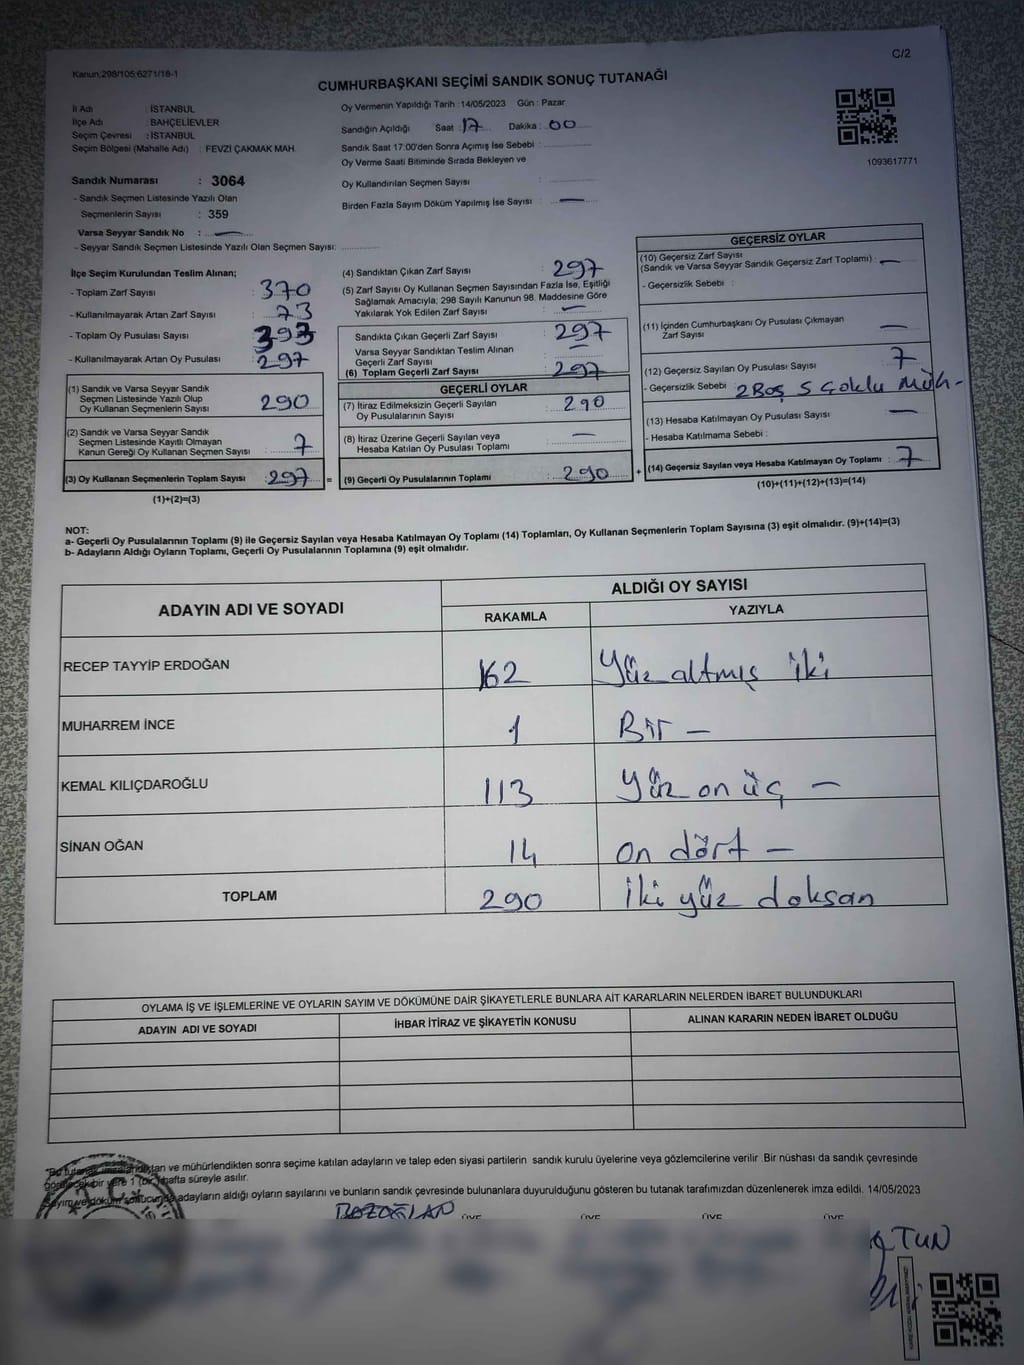 C/2
Kanun;298/105;6271/18-1
CUMHURBAŞKANI SEÇİMİ SANDIK SONUÇ TUTANAĞI
İl Adı : İSTANBUL
İlçe Adı : BAHÇELİEVLER
Seçim Çevresi : İSTANBUL
Seçim Bölgesi (Mahalle Adı) : FEVZİ ÇAKMAK MAH.
Sandık Numarası : 3064
- Sandık Seçmen Listesinde Yazılı Olan
Seçmenlerin Sayısı : 359
Varsa Seyyar Sandık No : —
- Seyyar Sandık Seçmen Listesinde Yazılı Olan Seçmen Sayısı:
Oy Vermenin Yapıldığı Tarih :14/05/2023 Gün : Pazar
Sandığın Açıldığı Saat : 17 Dakika : 00
Sandık Saat 17:00'den Sonra Açımış İse Sebebi :
Oy Verme Saati Bitiminde Sırada Bekleyen ve
Oy Kullandırılan Seçmen Sayısı :
Birden Fazla Sayım Döküm Yapılmış İse Sayısı : —
1093617771
İlçe Seçim Kurulundan Teslim Alınan;
- Toplam Zarf Sayısı : 370
- Kullanılmayarak Artan Zarf Sayısı : 73
- Toplam Oy Pusulası Sayısı : 393
- Kullanılmayarak Artan Oy Pusulası : 297
(1) Sandık ve Varsa Seyyar Sandık
Seçmen Listesinde Yazılı Olup
Oy Kullanan Seçmenlerin Sayısı : 290
(2) Sandık ve Varsa Seyyar Sandık
Seçmen Listesinde Kayıtlı Olmayan
Kanun Gereği Oy Kullanan Seçmen Sayısı : 7
(3) Oy Kullanan Seçmenlerin Toplam Sayısı : 297 =
(1)+(2)=(3)
(4) Sandıktan Çıkan Zarf Sayısı : 297
(5) Zarf Sayısı Oy Kullanan Seçmen Sayısından Fazla İse, Eşitliği
Sağlamak Amacıyla; 298 Sayılı Kanunun 98. Maddesine Göre
Yakılarak Yok Edilen Zarf Sayısı : —
Sandıkta Çıkan Geçerli Zarf Sayısı : 297
Varsa Seyyar Sandıktan Teslim Alınan
Geçerli Zarf Sayısı :
(6) Toplam Geçerli Zarf Sayısı : 297
GEÇERLİ OYLAR
(7) İtiraz Edilmeksizin Geçerli Sayılan
Oy Pusulalarının Sayısı : 290
(8) İtiraz Üzerine Geçerli Sayılan veya
Hesaba Katılan Oy Pusulası Toplamı : —
(9) Geçerli Oy Pusulalarının Toplamı : 290 +
GEÇERSİZ OYLAR
(10) Geçersiz Zarf Sayısı
(Sandık ve Varsa Seyyar Sandık Geçersiz Zarf Toplamı) : —
- Geçersizlik Sebebi :
(11) İçinden Cumhurbaşkanı Oy Pusulası Çıkmayan
Zarf Sayısı : —
(12) Geçersiz Sayılan Oy Pusulası Sayısı : 7
- Geçersizlik Sebebi : 2 Boş 5 Çoklu Müh-
(13) Hesaba Katılmayan Oy Pusulası Sayısı : —
- Hesaba Katılmama Sebebi :
(14) Geçersiz Sayılan veya Hesaba Katılmayan Oy Toplamı : 7
(10)+(11)+(12)+(13)=(14)
NOT:
a- Geçerli Oy Pusulalarının Toplamı (9) ile Geçersiz Sayılan veya Hesaba Katılmayan Oy Toplamı (14) Toplamları, Oy Kullanan Seçmenlerin Toplam Sayısına (3) eşit olmalıdır. (9)+(14)=(3)
b- Adayların Aldığı Oyların Toplamı, Geçerli Oy Pusulalarının Toplamına (9) eşit olmalıdır.
ADAYIN ADI VE SOYADI ALDIĞI OY SAYISI
RAKAMLA YAZIYLA
RECEP TAYYİP ERDOĞAN 162 Yüz altmış iki
MUHARREM İNCE 1 Bir —
KEMAL KILIÇDAROĞLU 113 Yüz on üç —
SİNAN OĞAN 14 on dört —
TOPLAM 290 iki yüz doksan
OYLAMA İŞ VE İŞLEMLERİNE VE OYLARIN SAYIM VE DÖKÜMÜNE DAİR ŞİKAYETLERLE BUNLARA AİT KARARLARIN NELERDEN İBARET BULUNDUKLARI
ADAYIN ADI VE SOYADI İHBAR İTİRAZ VE ŞİKAYETİN KONUSU ALINAN KARARIN NEDEN İBARET OLDUĞU
*Bu tutanak imzalandıktan ve mühürlendikten sonra seçime katılan adayların ve talep eden siyasi partilerin sandık kurulu üyelerine veya gözlemcilerine verilir .Bir nüshası da sandık çevresinde
görülecek bir yere 1 (bir) hafta süreyle asılır.
Sayım ve döküm sonucunda adayların aldığı oyların sayılarını ve bunların sandık çevresinde bulunanlara duyurulduğunu gösteren bu tutanak tarafımızdan düzenlenerek imza edildi. 14/05/2023
ÜYE ÜYE ÜYE ÜYE